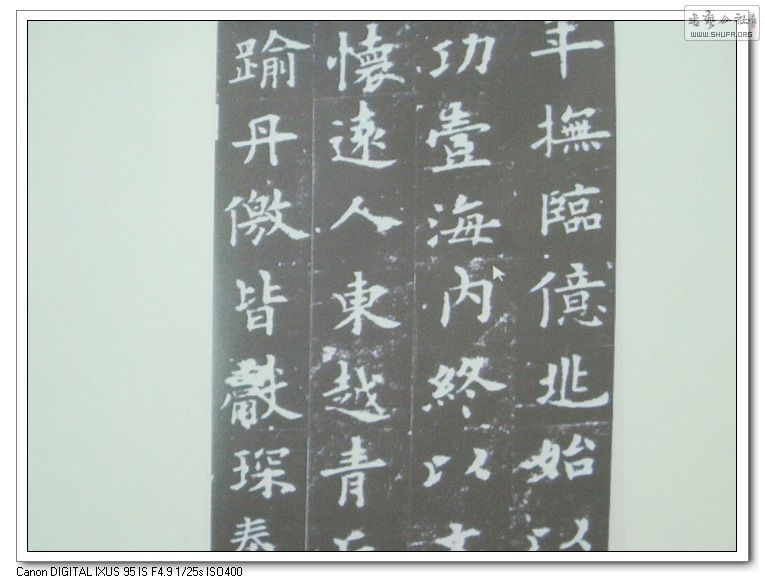 书艺公社
WWW.SHUFA.ORG
年撫臨億兆始以
功壹海內終以文
懷遠人東越青丘
踰丹儌皆獻琛奉
Canon DIGITAL IXUS 95 IS F4.9 1/25s ISO400